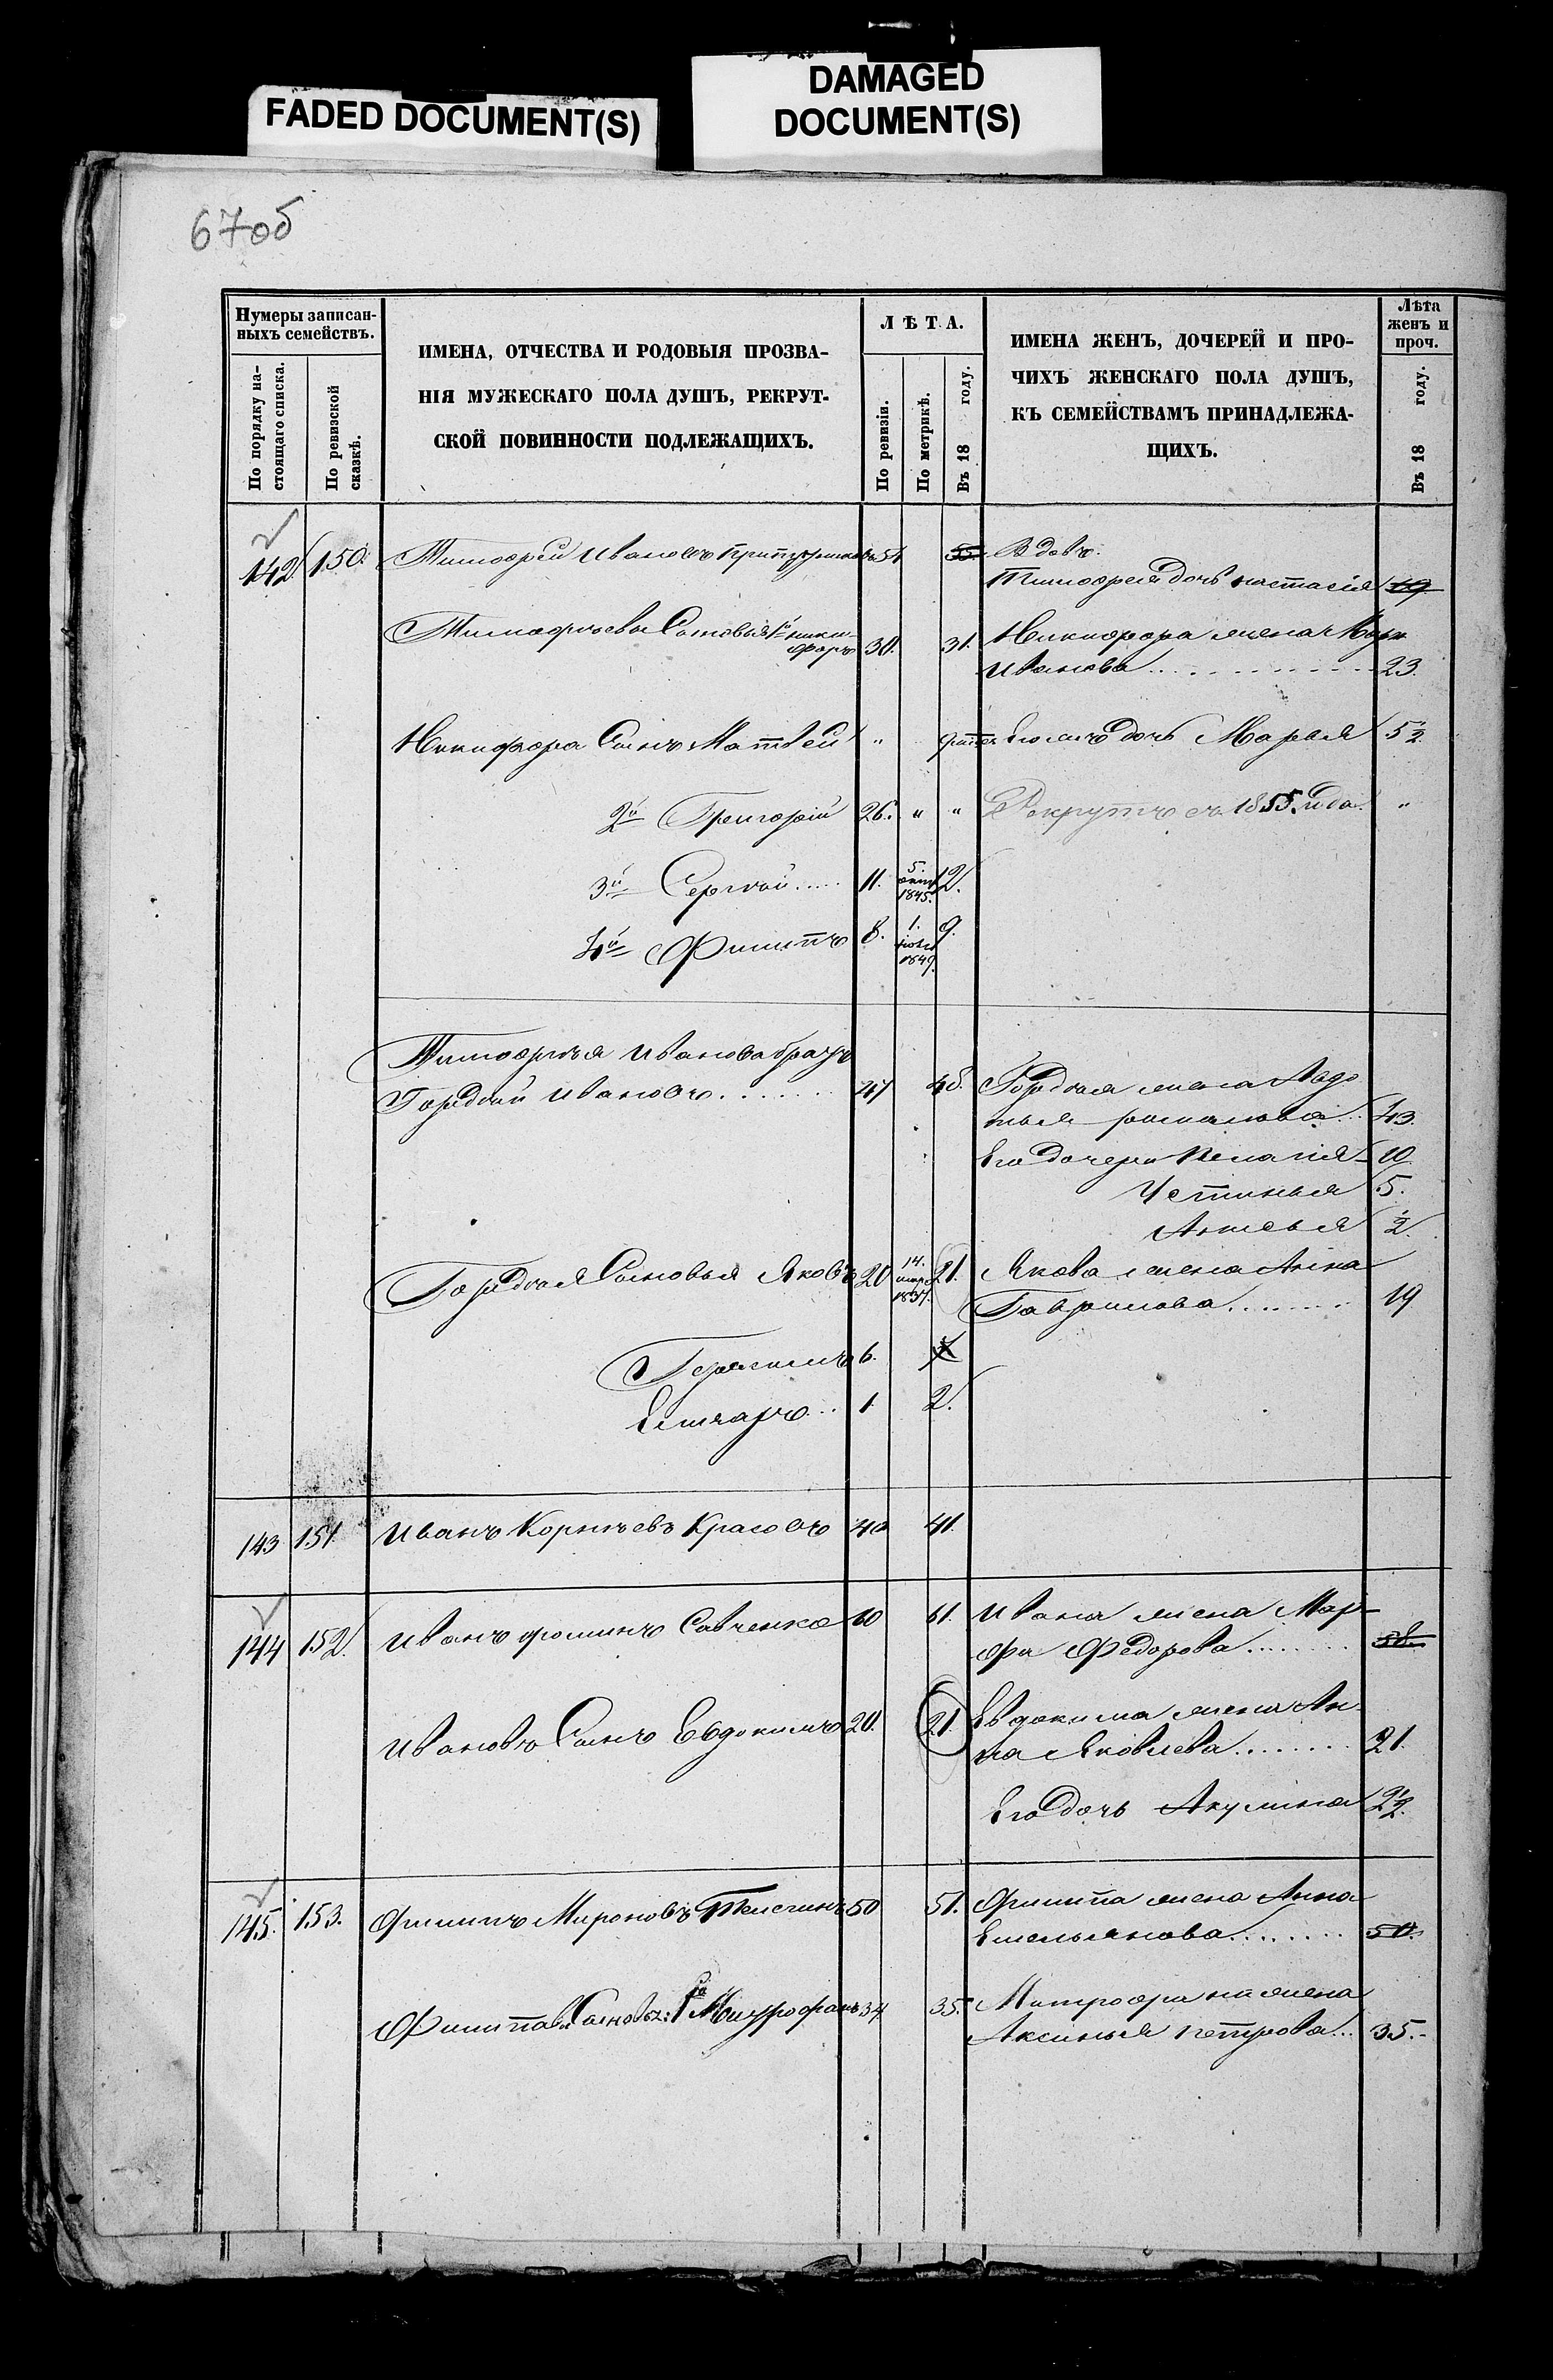 FADED DOCUMENT(S)
DAMAGED
DOCUMENT(S)
67об
Нумеры записан-
ныхъ семействъ.
По порядку на-
стоящаго списка.
По ревизской
сказкѣ.
ИМЕНА, ОТЧЕСТВА И РОДОВЫЯ ПРОЗВА-
НІЯ МУЖЕСКАГО ПОЛА ДУШЪ, РЕКРУТ-
СКОЙ ПОВИННОСТИ ПОДЛЕЖАЩИХЪ.
ЛѢТА.
По ревизіи.
По метрикѣ.
Въ 18 году.
ИМЕНА ЖЕНЪ, ДОЧЕРЕЙ И ПРО-
ЧИХЪ ЖЕНСКАГО ПОЛА ДУШЪ,
КЪ СЕМЕЙСТВАМЪ ПРИНАДЛЕЖА-
ЩИХЪ.
Лѣта
женъ и
проч.
Въ 18 году.
142 150. Тимофей Ивановъ 54 55. Вдовъ.
Тимофея дочь настасія 19
Тимофеевы Сыновья 1й ники-
форъ 30. 31. Никифора жена Марья
Иванова 23.
Никифора Сынъ Матвей " Его дочь Марья 5½
2й Григорій 26. " " Рекрутъ съ 1855 года. "
3й Сергѣй 11. 5 1845. 12.
4й Филипъ 8. 1. 1849. 9.
Тимофея Иванова братъ
Гордѣй Ивановъ 47 48. Гордѣя жена Авдо
тья романова 43.
Его дочери Пелагія 10
Устинья 5.
½
Гордѣя Сыновья Яковъ 20 14. 1837. 21. Якова жена Анна
Гаврилова 19
Герасимъ 6.
1 2.
143 151 Иванъ Корнѣевъ Красовъ 40 41.
144 152. Иванъ фоминъ Савченко 60 61. Ивана жена Мар-
фа Федорова 58.
Ивановъ Сынъ Евдокимъ 20. 21. Евдокима жена Ан-
на Яковлева 21.
Его дочь Акулина 2½.
145. 153. Филипъ Мироновъ Телегинъ 50 51. Филипа жена Анна
Емельянова 50.
Филипа Сыновья: 1й Митрофанъ 34 35. Митрофана жена
Аксинья петрова 35.